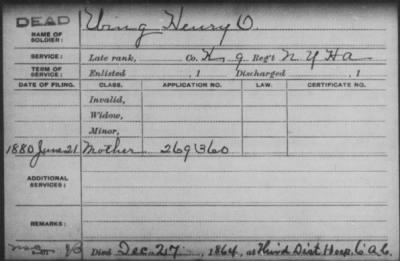 DEAD
NAME OF SOLDIER: Ewing Henry O.
SERVICE: Late rank, Co. K 9 Reg't N Y H A
TERM OF SERVICE: Enlisted , 1 Discharged , 1
DATE OF FILING. CLASS. APPLICATION NO. LAW. CERTIFICATE NO.
Invalid,
Widow,
Minor,
1880 June 21 Mother 269360
ADDITIONAL SERVICES:
REMARKS:
Died Dec 27, 1864, at Third Dist Hosp, 6 A.C.